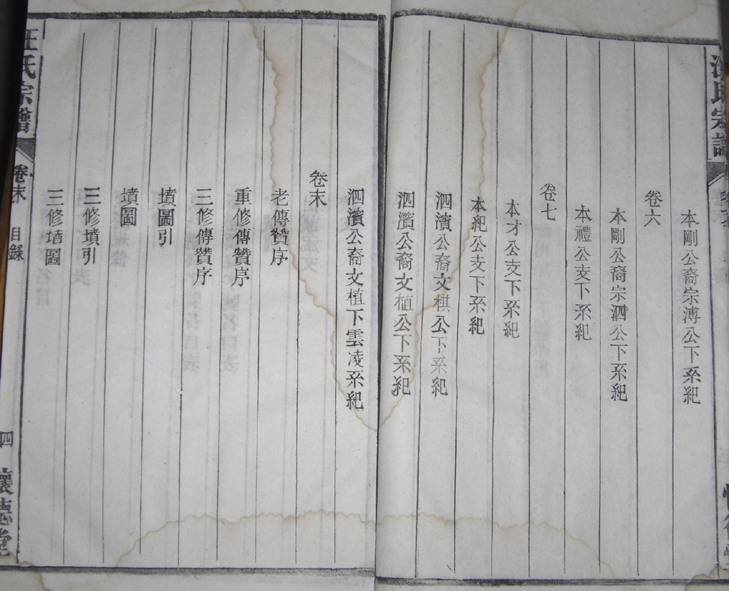 本剛公裔宗溥公下系紀
卷六
本剛公裔宗泗公下系紀
本禮公支下系紀
卷七
本才公支下系紀
本紀公支下系紀
泗濱公裔文棋公下系紀
泗濱公裔文植公下系紀
泗濱公裔文植下雲凌系紀
卷末
老傳贊序
重修傳贊序
三修傳贊序
墳圖引
墳圖
三修墳引
三修墳圖
汪氏宗譜
卷末
目錄
四
懷德堂